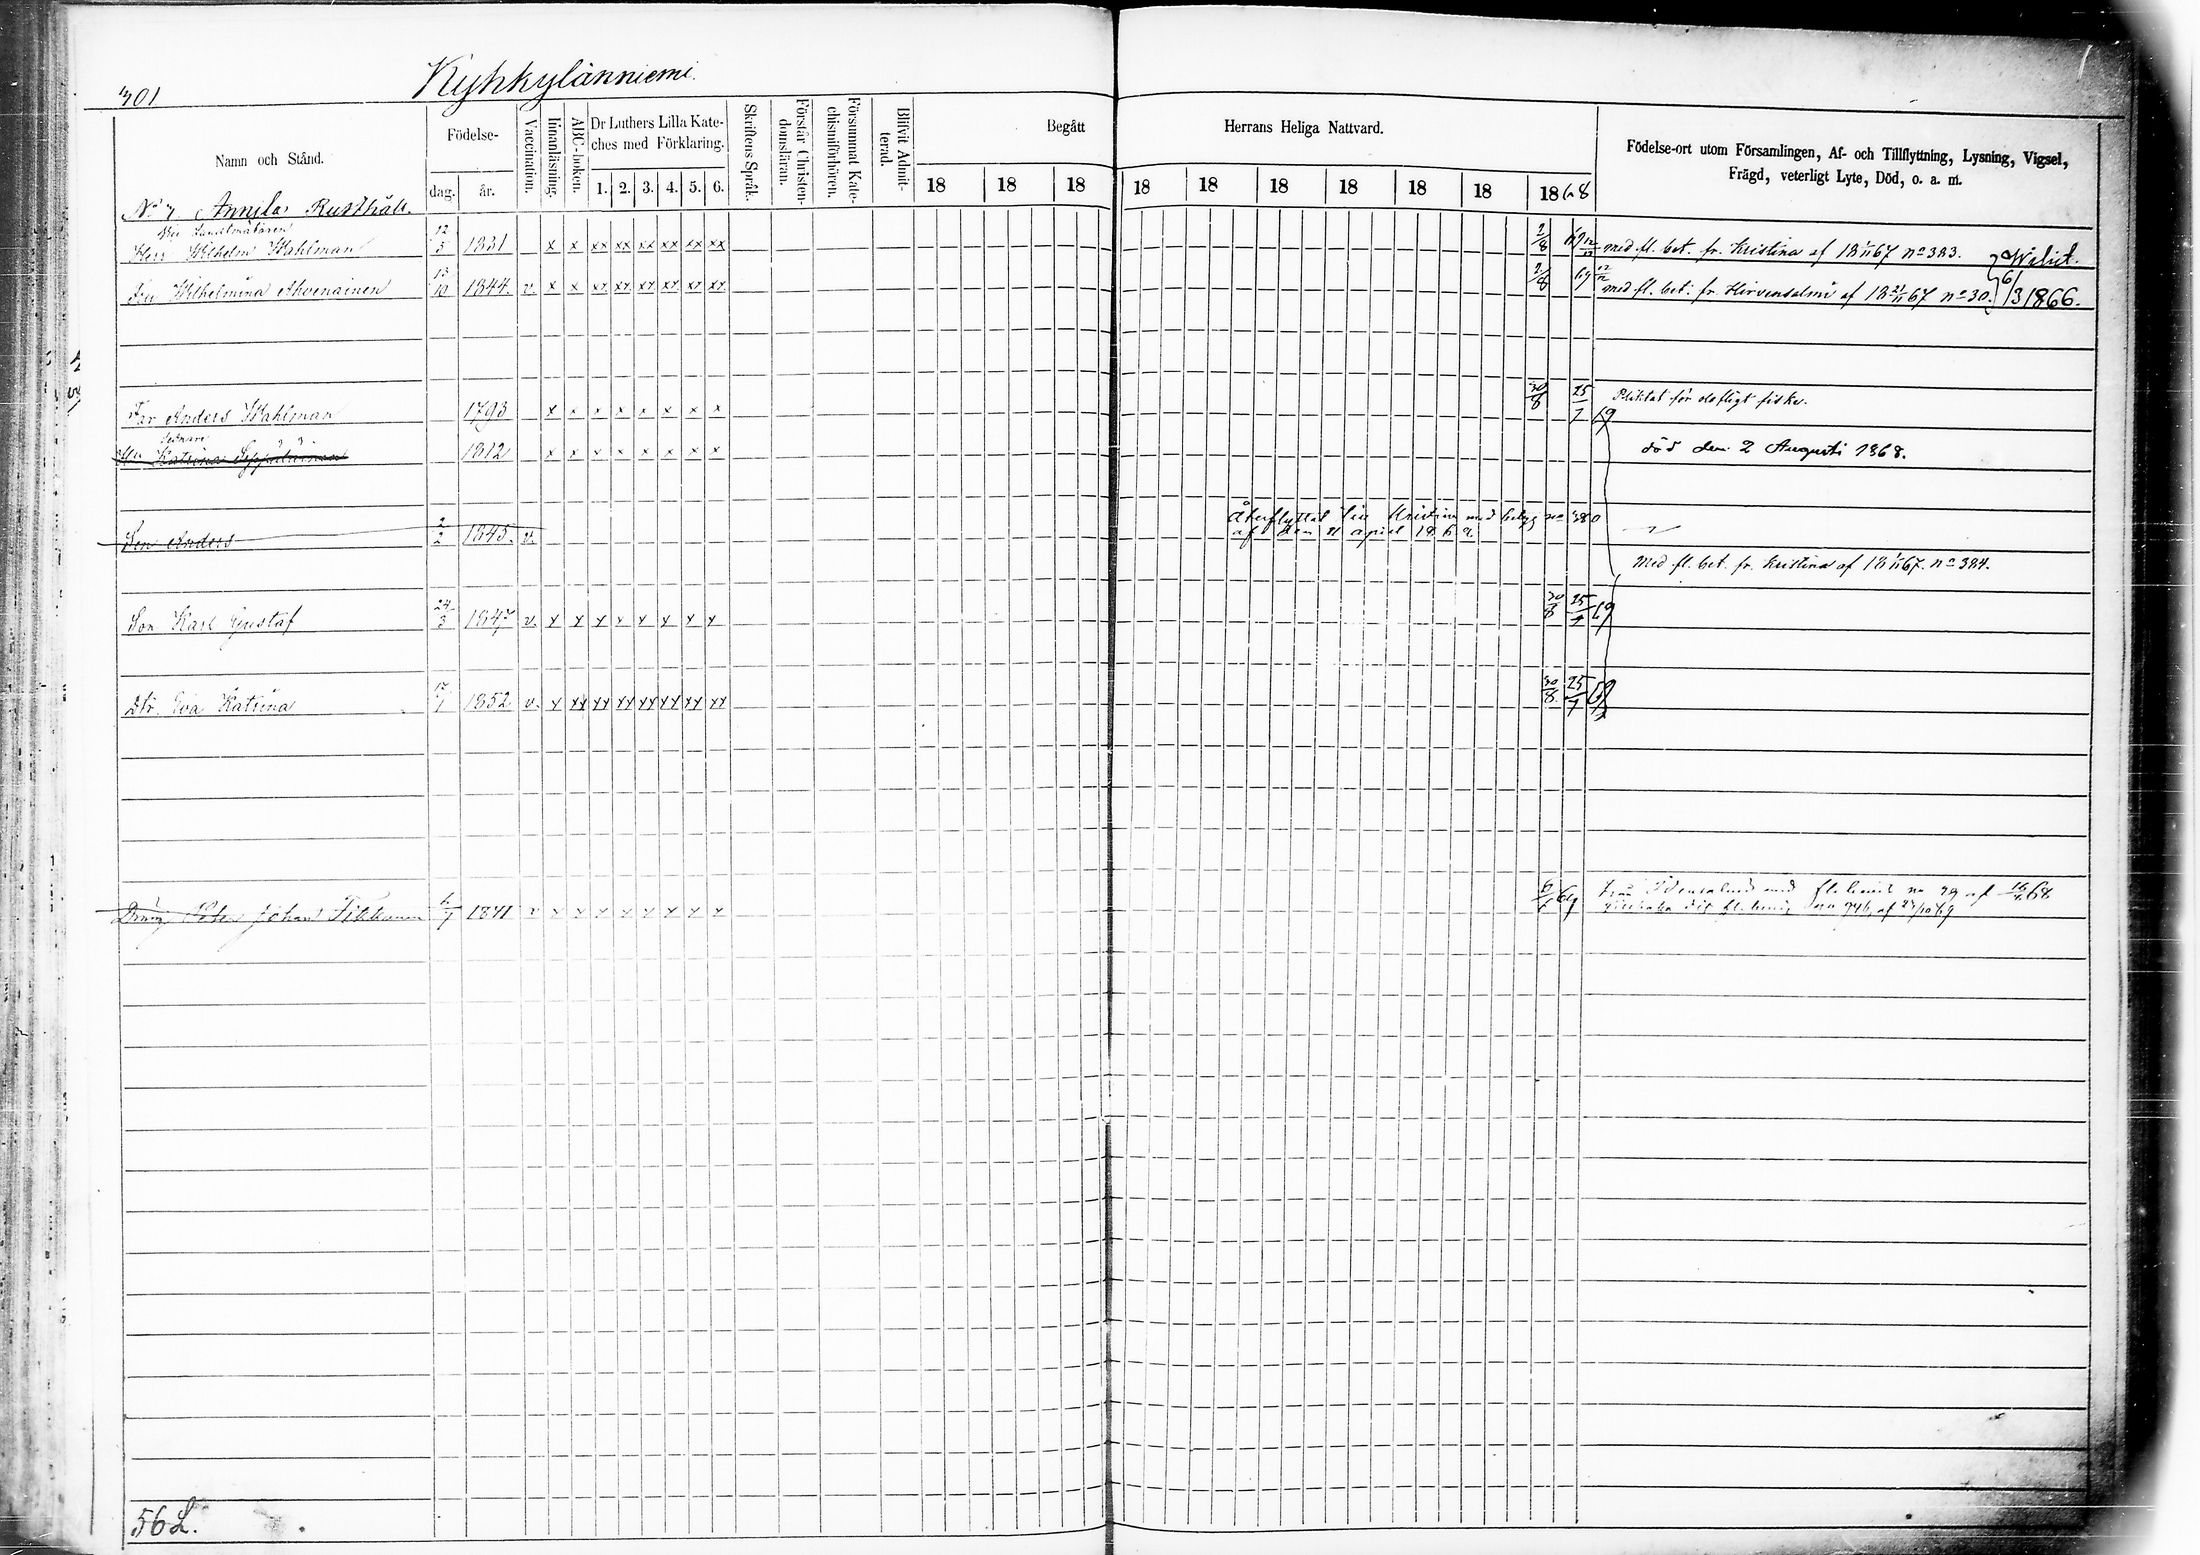 301
Kyhkylänniemi.
Namn och Stånd.
Födelse-
dag.
år.
Vaccination.
Innanläsning.
ABC-boken.
Dr Luthers Lilla Kate-
ches med Förklaring.
1. 2. 3. 4. 5. 6.
Skriftens Språk.
Förstår Christen-
domsläran.
Försummat Kate-
chismiförhören.
Blifvit Admit-
terad.
Begått Herrans Heliga Nattvard.
18 18 18 18 18 18 18 18 18 1868
Födelse-ort utom Församlingen, Af- och Tillflyttning, Lysning, Vigsel,
Frägd, veterligt Lyte, Död, o. a. m.
No 7 Annila Rusthåll.
Vice Landtmätaren
Herr Wilhelm Wahlman 12/3 1831 x x xx xx xx xx xx xx 2/8 69 med fl. bet. fr. Kristina af 18 1/11 67 no 383. Wihit.
Fru Wilhelmina Ahvenainen 13/10 1844. v. x x xx xx xx xx xx xx 2/8 69 med fl. bet. fr. Hirvensalmi af 18 21/11 67 no 30. 6/3 1866.
Far Anders Wahlman 1793 x x x x x x x x 30/8 25/7 69 Pliktat för olofligt fiske.
1812 x x x x x x x x död den 2 Augusti 1868.
Son Anders 2/2 1845. v. Återflyttat till Kristina med betyg no 380
af den 21 april 1869.
Med fl. bet. fr. Kristina af 18 1/11 67. no 384.
Son Karl Gustaf 24/3 1847 v. x x x x x x x x 30/8 25/7 69
Dtr. Eva Katrina 17/1 1852 v. x xx xx xx xx xx xx xx 30/8 25/7 69
Dräng Peter Johan Tikkanen 6/7 1841 v x x x x x x x x 69 no 39 af 68
56 L.